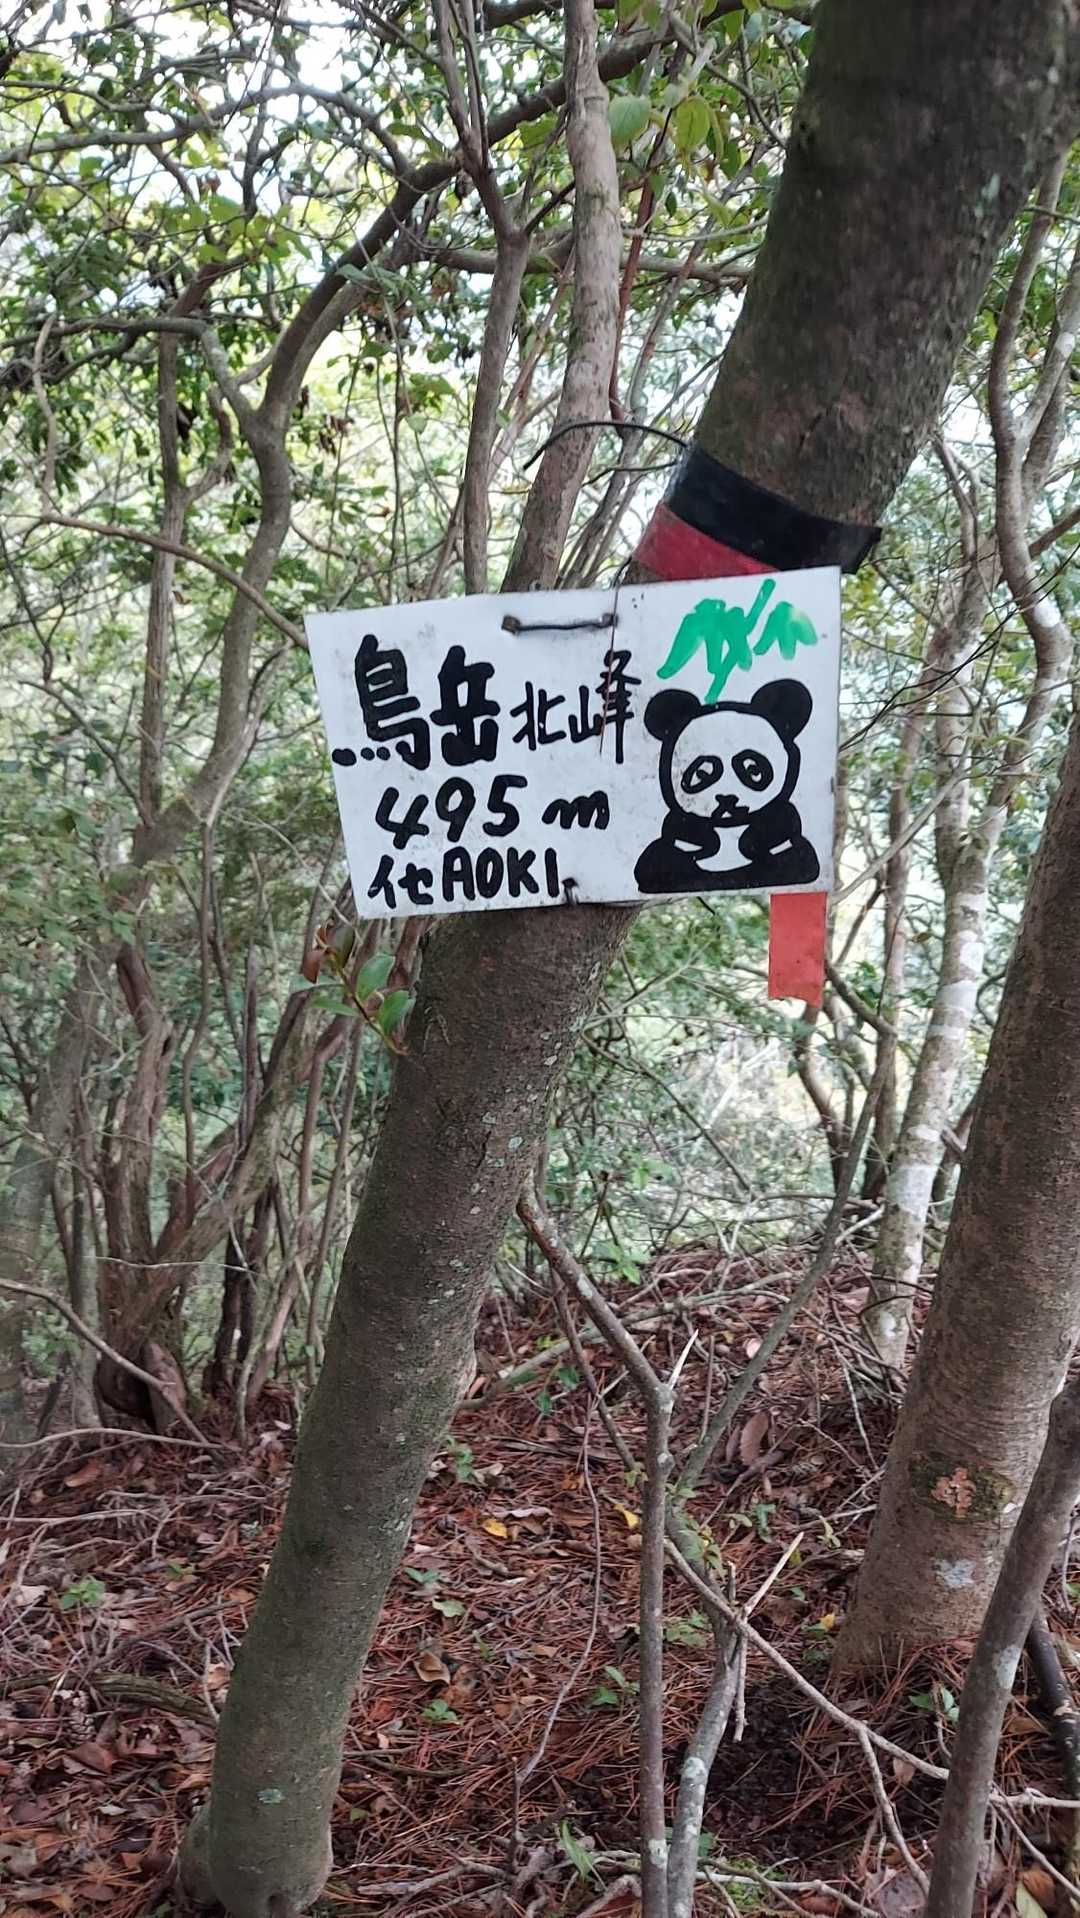 鳥岳北峰
495m
AOKI